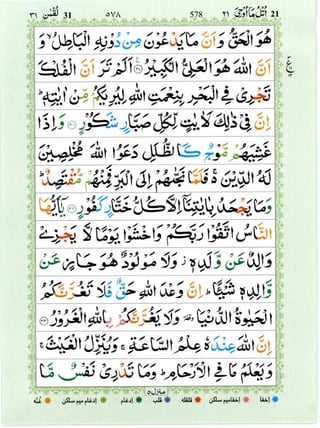 لقمن ٣١ ٥٧٨ 578 اتل ما اوحی ٢١
هُوَ الْحَقُّ وَ اَنَّ مَا یَدْعُوْنَ مِنْ دُوْنِهِ الْبَاطِلُ ۙ وَ
اَنَّ اللّٰهَ هُوَ الْعَلِیُّ الْكَبِیْرُ۠ اَلَمْ تَرَ اَنَّ الْفُلْكَ
تَجْرِیْ فِی الْبَحْرِ بِنِعْمَتِ اللّٰهِ لِیُرِیَكُمْ مِّنْ اٰیٰتِهٖ ؕ
اِنَّ فِیْ ذٰلِكَ لَاٰیٰتٍ لِّكُلِّ صَبَّارٍ شَكُوْرٍ وَ اِذَا
غَشِیَهُمْ مَّوْجٌ كَالظُّلَلِ دَعَوُا اللّٰهَ مُخْلِصِیْنَ
لَهُ الدِّیْنَ ۚ۬ فَلَمَّا نَجّٰىهُمْ اِلَی الْبَرِّ فَمِنْهُمْ مُّقْتَصِدٌ ؕ
وَ مَا یَجْحَدُ بِاٰیٰتِنَاۤ اِلَّا كُلُّ خَتَّارٍ كَفُوْرٍ یٰۤاَیُّهَا
النَّاسُ اتَّقُوْا رَبَّكُمْ وَ اخْشَوْا یَوْمًا لَّا یَجْزِیْ
وَالِدٌ عَنْ وَّلَدِهٖ ؗ وَ لَا مَوْلُوْدٌ هُوَ جَازٍ عَنْ
وَّالِدِهٖ شَیْـًٔا ؕ اِنَّ وَعْدَ اللّٰهِ حَقٌّ فَلَا تَغُرَّنَّكُمُ
الْحَیٰوةُ الدُّنْیَا ۥ وَ لَا یَغُرَّنَّكُمْ بِاللّٰهِ الْغَرُوْرُ
اِنَّ اللّٰهَ عِنْدَهٗ عِلْمُ السَّاعَةِ ۚ وَ یُنَزِّلُ الْغَیْثَ ۚ
وَ یَعْلَمُ مَا فِی الْاَرْحَامِ ؕ وَ مَا تَدْرِیْ نَفْسٌ مَّا
منزل ٥
اخفا اخفا میم ساکن قلقله قلب ادغام ادغام میم ساکن غنّه